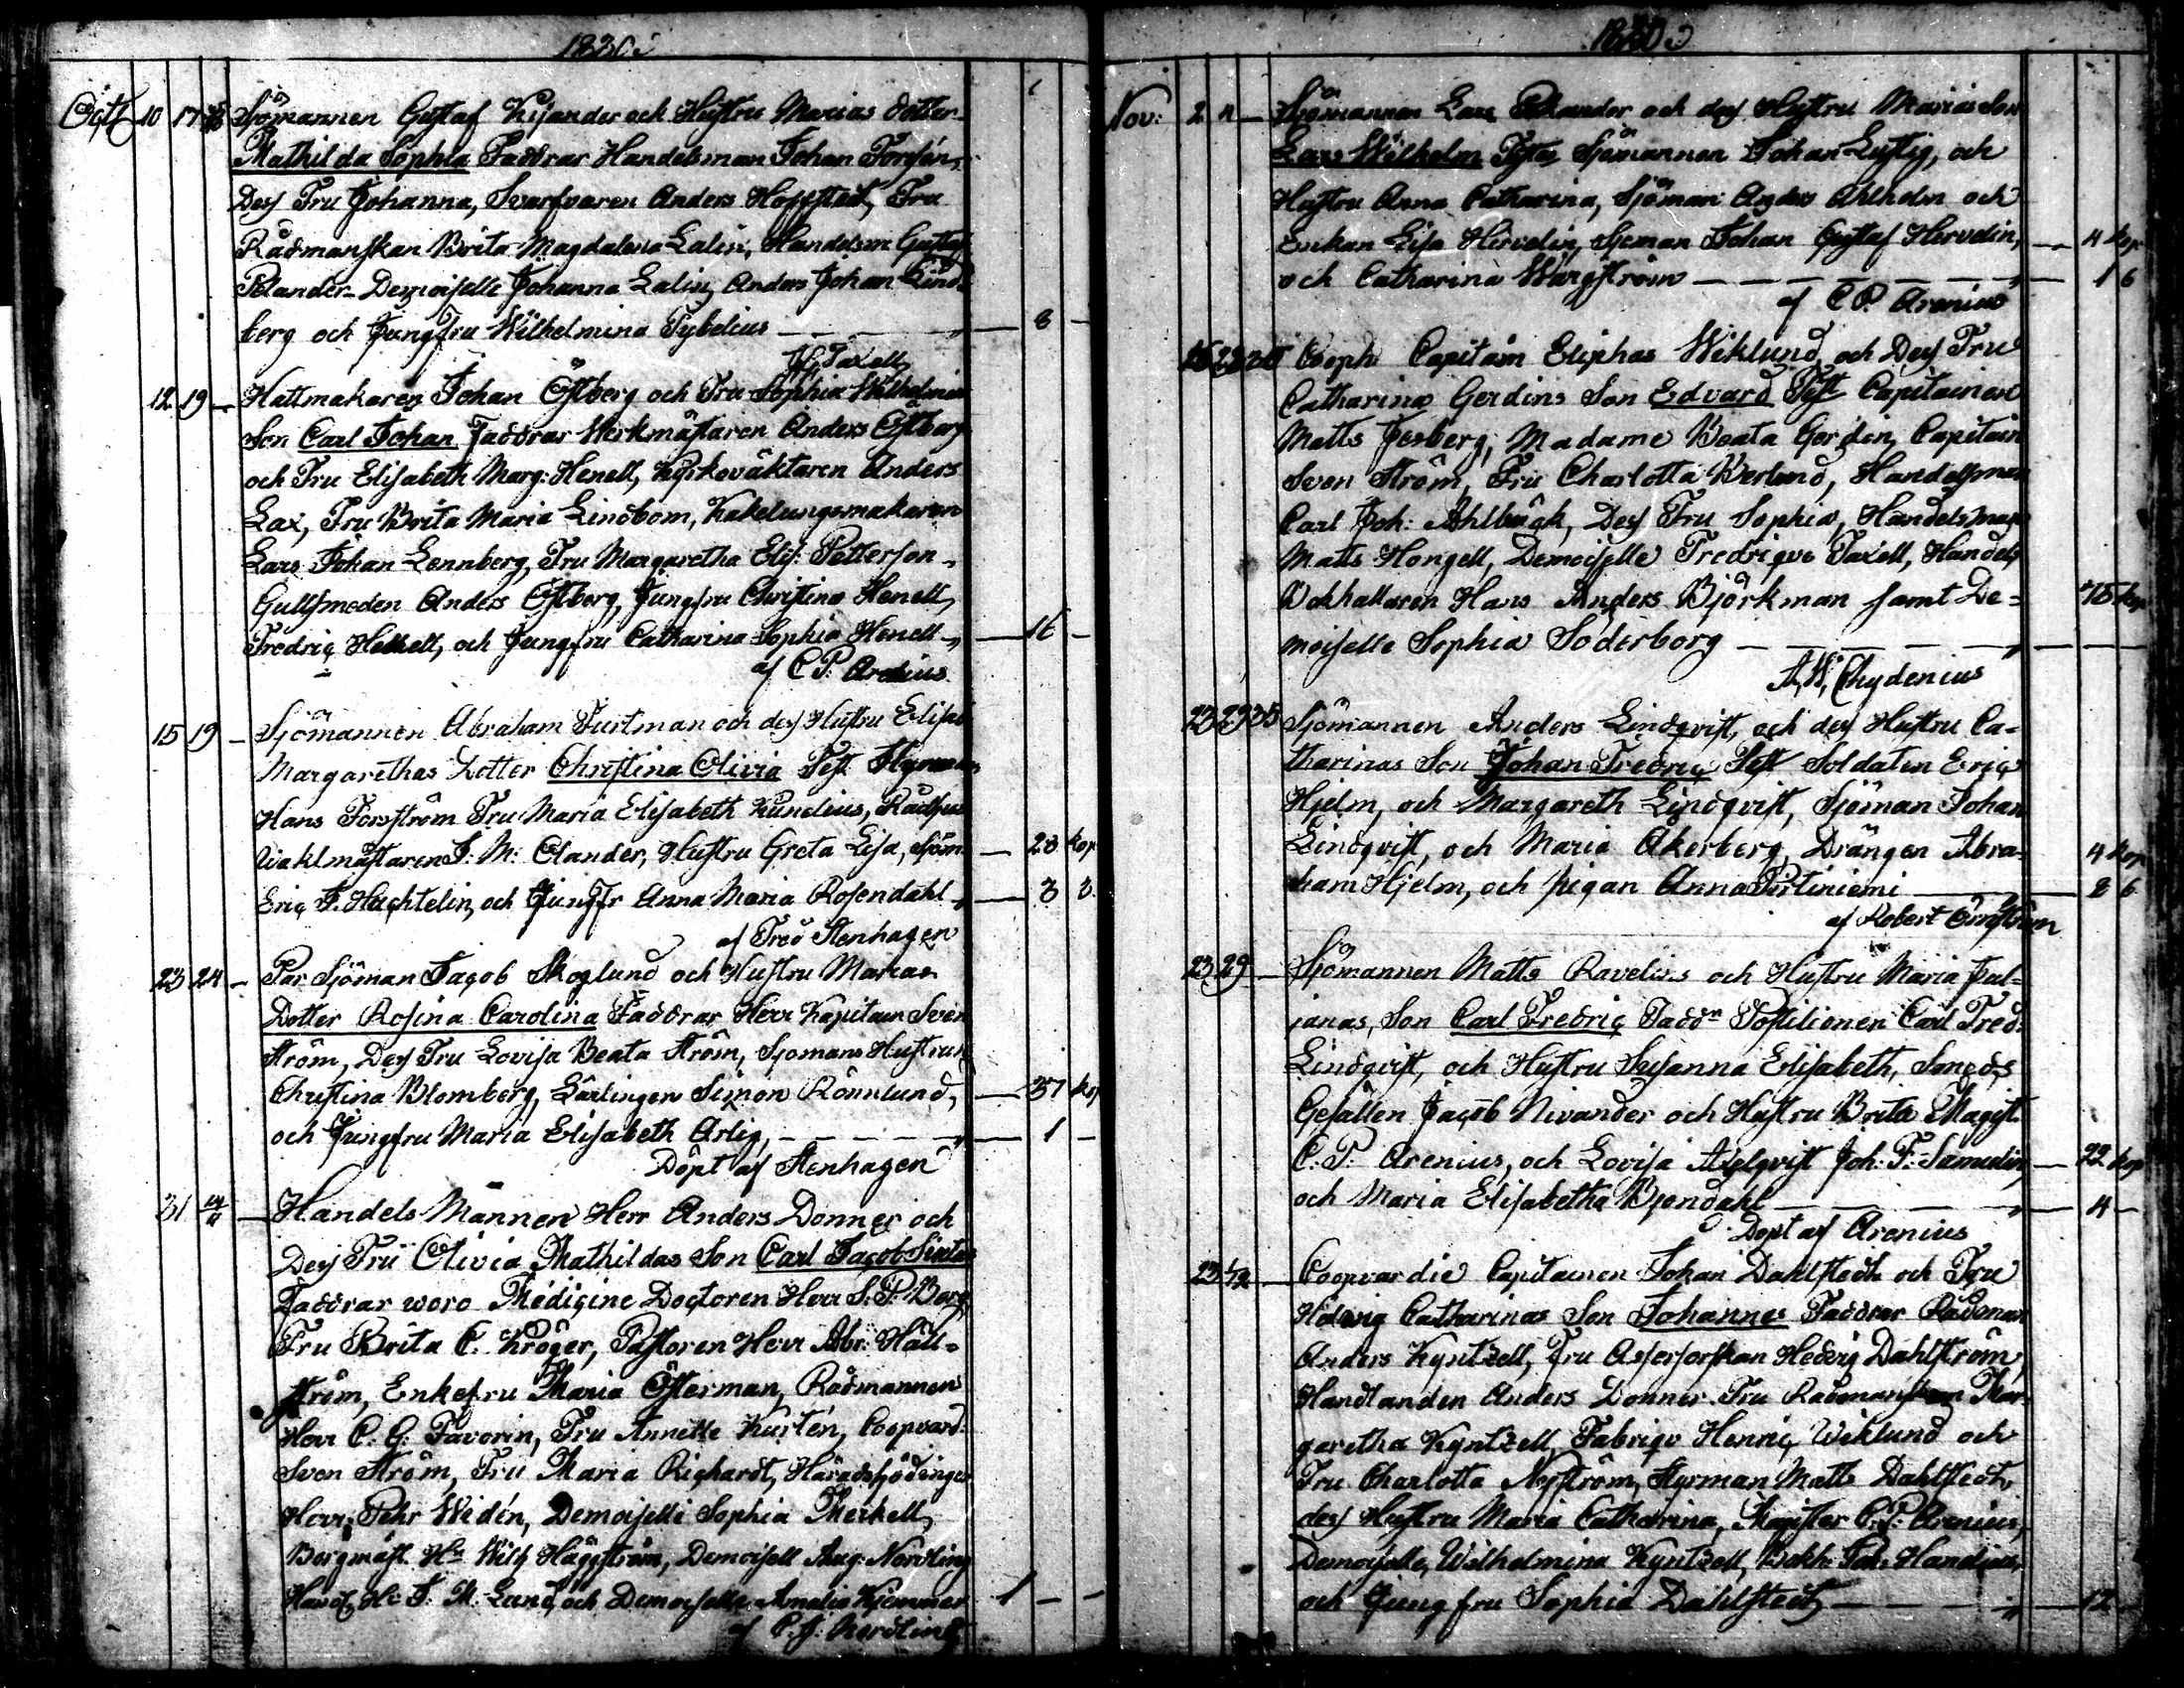 1830.
Octb 10 17 Sjömannen Gustaf Kijander och Hustru Marias dotter
Mathilda Sophia Faddrar Handelsman Johan Forsén,
Dess Fru Johanna, Svarfvaren Anders Hoffsted, Fru
Rådmanskan Brita Magdalena Lalin, Handelsm: Gustaf
Pelander Demoiselle Johanna Lalin, Anders Johan Lind-
berg och Jungfru Wilhelmina Sybelius — 8 —
Taxell
12 19 — Hattmakaren Johan Östberg och Fru Sophia Wilhelminas
Son Carl Johan Faddrar Werkmästaren Anders Östberg
och Fru Elisabeth Marg: Henell, Kyrkoväktaren Anders
Lax, Fru Brita Maria Lindbom, Kakelungsmakaren
Lars Johan Lennberg, Fru Margaretha Elis: Petterson,
Gullsmeden Anders Östberg, Jungfru Christina Henell,
Fredric Henell, och Jungfru Catharina Sophia Henell — 16 —
af C P. Arenius
15 19 — Sjömannen Abraham Furtman och dess Hustru Elisab
Margarethas Dotter Christina Olivia Test. Styrman
Hans Forsström Fru Maria Elisabeth Kunelius, Rådhus
Waktmästaren J. M: Elander, Hustru Greta Lisa, Sjöm. — 23 kop
Eric J. Hachtelin, och Jungfr Anna Maria Rosendahl — 3
af Fred Stenhagen
23 24 — Par Sjöman Jacob Skoglund och Hustru Marias
Dotter Rosina Carolina Faddrar Herr Kapitain Sven
Ström, Dess Fru Lovisa Beata Ström, Sjömans Hustrun
Christina Blomberg, Lärlingen Simon Rönnlund, — 37 kop
och Jungfru Maria Elisabeth Arlig, — 1 —
Döpt af Stenhagen
31 — Handels Mannen Herr Anders Donner och
Dess Fru Olivia Mathildas Son Carl Jacob
Faddrar woro Medicine Doctoren Herr S. P. Berg
Fru Brita C. Kröger, Pastoren Herr Abr: Häll-
ström, Enkefru Maria Österman, Rådmannen
Herr C. G. Favorin, Fru Annette Kurtén, Coopvard:
Sven Ström, Fru Maria Righardt, Häradshöfdingen
Herr Pehr Widén, Demoiselle Sophia Merkell,
Borgmäst. Hr Wilh Häggström, Demoisell Aug: Nordling
Handl, Hr J. M. Lund, och Demoiselle Amalia — 1 — —
af P. J. Nordlund
1830.
Nov: 2 4 — Sjömannen Lars Pelander och dess Hustru Marias Son
Lars Wilhelm Testes Sjömannen Johan Lustig, och
Hustru Anna Catharina, Sjöman Anders Ahlholm och
Enkan Lisa Hervelin, Sjöman Johan Gustaf Hervelin, — 4 kop
och Catharina Wargström — 1 6
af C P. Arenius
Cooph: Capitain Eliphas Wiklund, och Dess Fru
Catharina Gerdins Son Edvard Test Capitainen
Matts Fosberg, Madame Beata Gerdin, Capitain
Sven Ström, Fru Charlotta Berlund, Handelsman
Carl Joh: Ahlbäck, Dess Fru Sophia, Handelsman
Matts Hongell, Demoiselle Fredrique Taxell, Handels
Bokhallaren Hans Anders Björkman samt De- 75 kop
moiselle Sophia Söderborg — — —
A. W. Chydenius
23 29 35 Sjömannen Anders Lindqvist, och dess Hustru Ca-
tharinas Son Johan Fredric Test Soldaten Eric
Hjelm, och Margareth Lindqvist, Sjöman Johan
Lindqvist, och Maria Åkerberg, Drängen Abra- 4 kop
ham Hjelm, och pigan Anna Portiniemi — 8 6
af Robert Engström
23 29 — Sjömannen Matts Ravelins och Hustru Maria Jul-
ianas, Son Carl Fredric Faddr Postilionen Carl Fred.
Lindqvist, och Hustru Susanna Elisabeth, Smeds
Gesällen Jacob Nivander och Hustru Brita Magist.
C. P. Arenius, och Lovisa Axelqvist Joh: F. Samelin — 22 kop
och Maria Elisabetha Bjondahl — 4 —
Döpt af Arenius
23 Coopvardie Capitainen Johan Dahlstedt och Fru
Hedvig Catharinas Son Johannes Faddrar Rådman
Anders Kyntzell, Fru Assessorskan Hedvig Dahlström,
Handlanden Anders Donner Fru Rådmanskan Mar-
garetha Kyntzell, Fabriqv Henric Wiklund och
Fru Charlotta Nyström, Styrman Matts Dahlstedt,
dess Hustru Maria Catharina, Magister C. P. Arenius,
Demoiselle Wilhelmina Kyntzell, Bokh: Joh:
och Jungfru Sophia Dahlstedt — 12